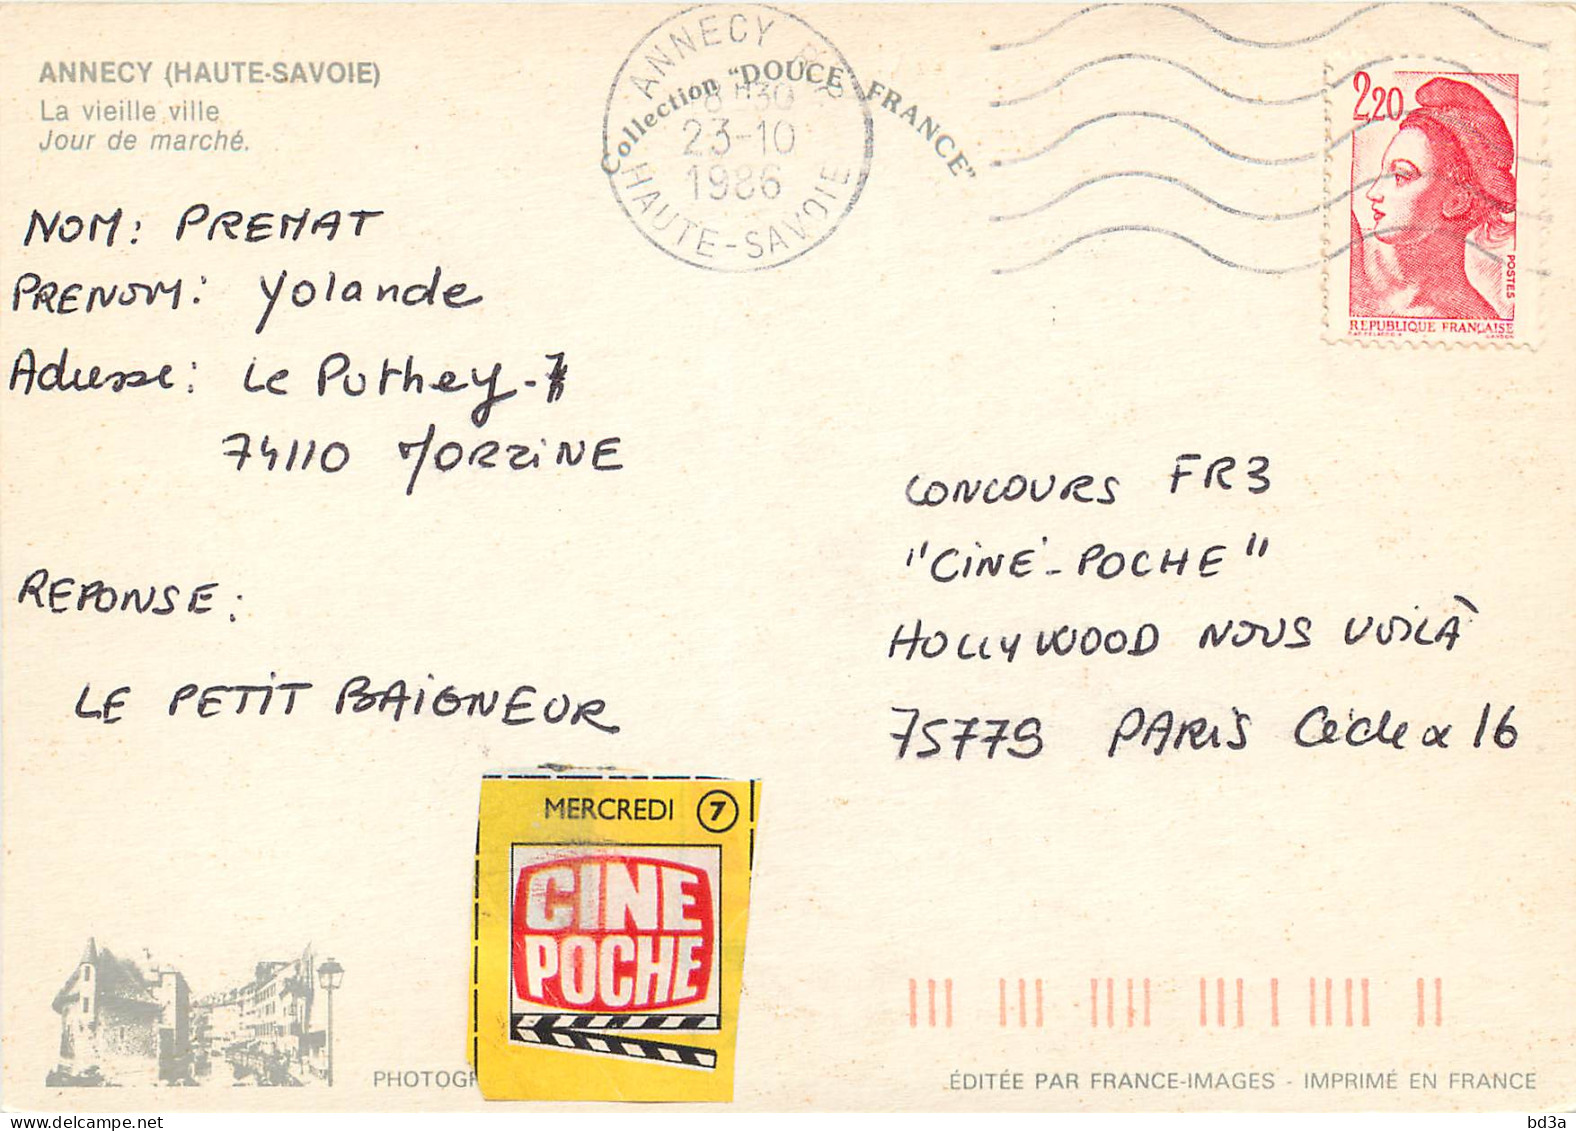 ANNECY (HAUTE-SAVOIE)
La vieille ville
Jour de marché.
ANNECY R.P.
8 H30
23-10
1986
HAUTE-SAVOIE
Collection "DOUCE FRANCE"
2,20
POSTES
REPUBLIQUE FRANÇAISE
NOM: PREMAT
PRENOM: Yolande
Adresse: Le Puthey -
74110 MORZINE
REPONSE:
LE PETIT BAIGNEUR
CONCOURS FR3
"CINÉ-POCHE"
HOLLYWOOD NOUS VOILÀ
75779 PARIS Cédex 16
MERCREDI 7
CINE
POCHE
PHOTOGR
ÉDITÉE PAR FRANCE-IMAGES - IMPRIMÉ EN FRANCE
delcampe.net
bd3a